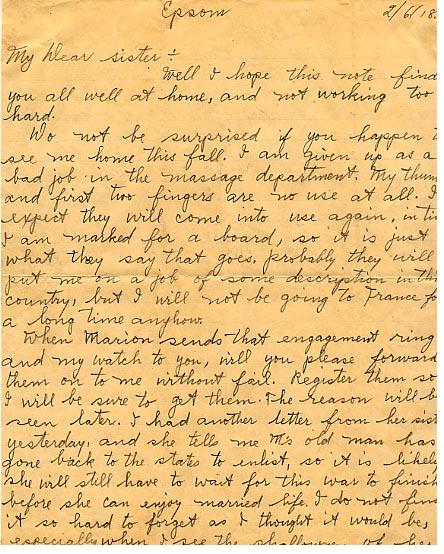 Epsom
2/6/18
My Dear sister:-
Well I hope this note find
you all well at home, and not working too
hard.
Do not be surprised if you happen
see me home this fall. I am given up as a
bad job in the massage department. My thum
and first two fingers are no use at all. I
expect they will come into use again, in ti
I am marked for a board, so it is just
what they say that goes. Probably they will
put me on a job of some description in thi
country, but I will not be going to France fo
a long time anyhow.
When Marion sends that engagement ring
and my watch to you, will you please forward
them on to me without fail. Register them so
I will be sure to get them. The reason will b
seen later. I had another letter from her sist
yesterday, and she tells me M's old man has
gone back to the states to enlist, so it is likel
she will still have to wait for this war to finish
before she can enjoy married life. I do not find
it so hard to forget as I thought it would be,
especially when I see the shallowness of her